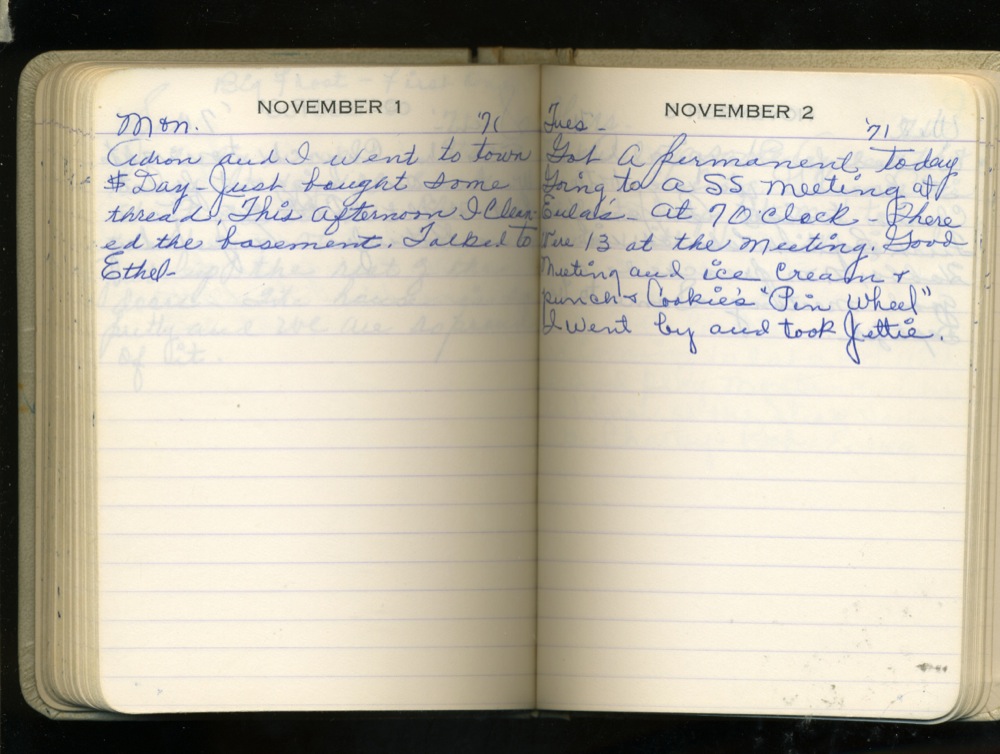 NOVEMBER 1
Mon. '71
Adron and I went to town
$ Day - Just bought some
thread, This afternoon I Clean-
ed the basement. Talked to
Ethel-
NOVEMBER 2
Tues - '71
Got A permanent today
Going to a SS meeting at
Eula's - at 7 O'clock - There
were 13 at the Meeting. Good
Meeting and ice Cream +
punch + Cookie's "Pin Wheel"
I went by and took Jettie.